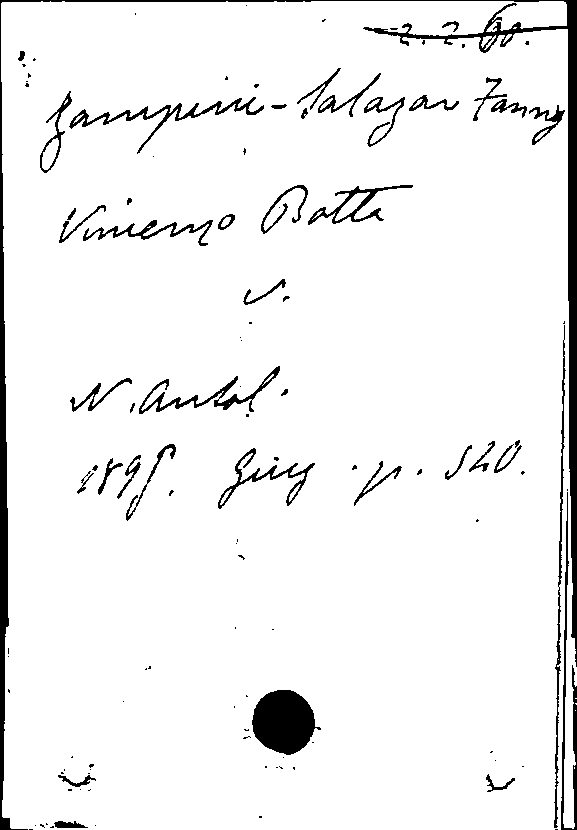 2.2.60.
Zampini-Salazar Fanny
Vincenzo Botta
v.
N. Antol.
1895. Giug. p. 520.